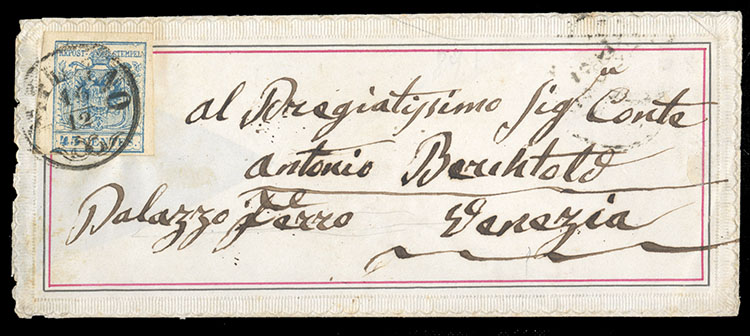 KKPOST-STEMPEL
MILANO
12
45 CENTES
al Pregiatissimo Sig Conte
Antonio Berchtold
Palazzo Ferro Venezia